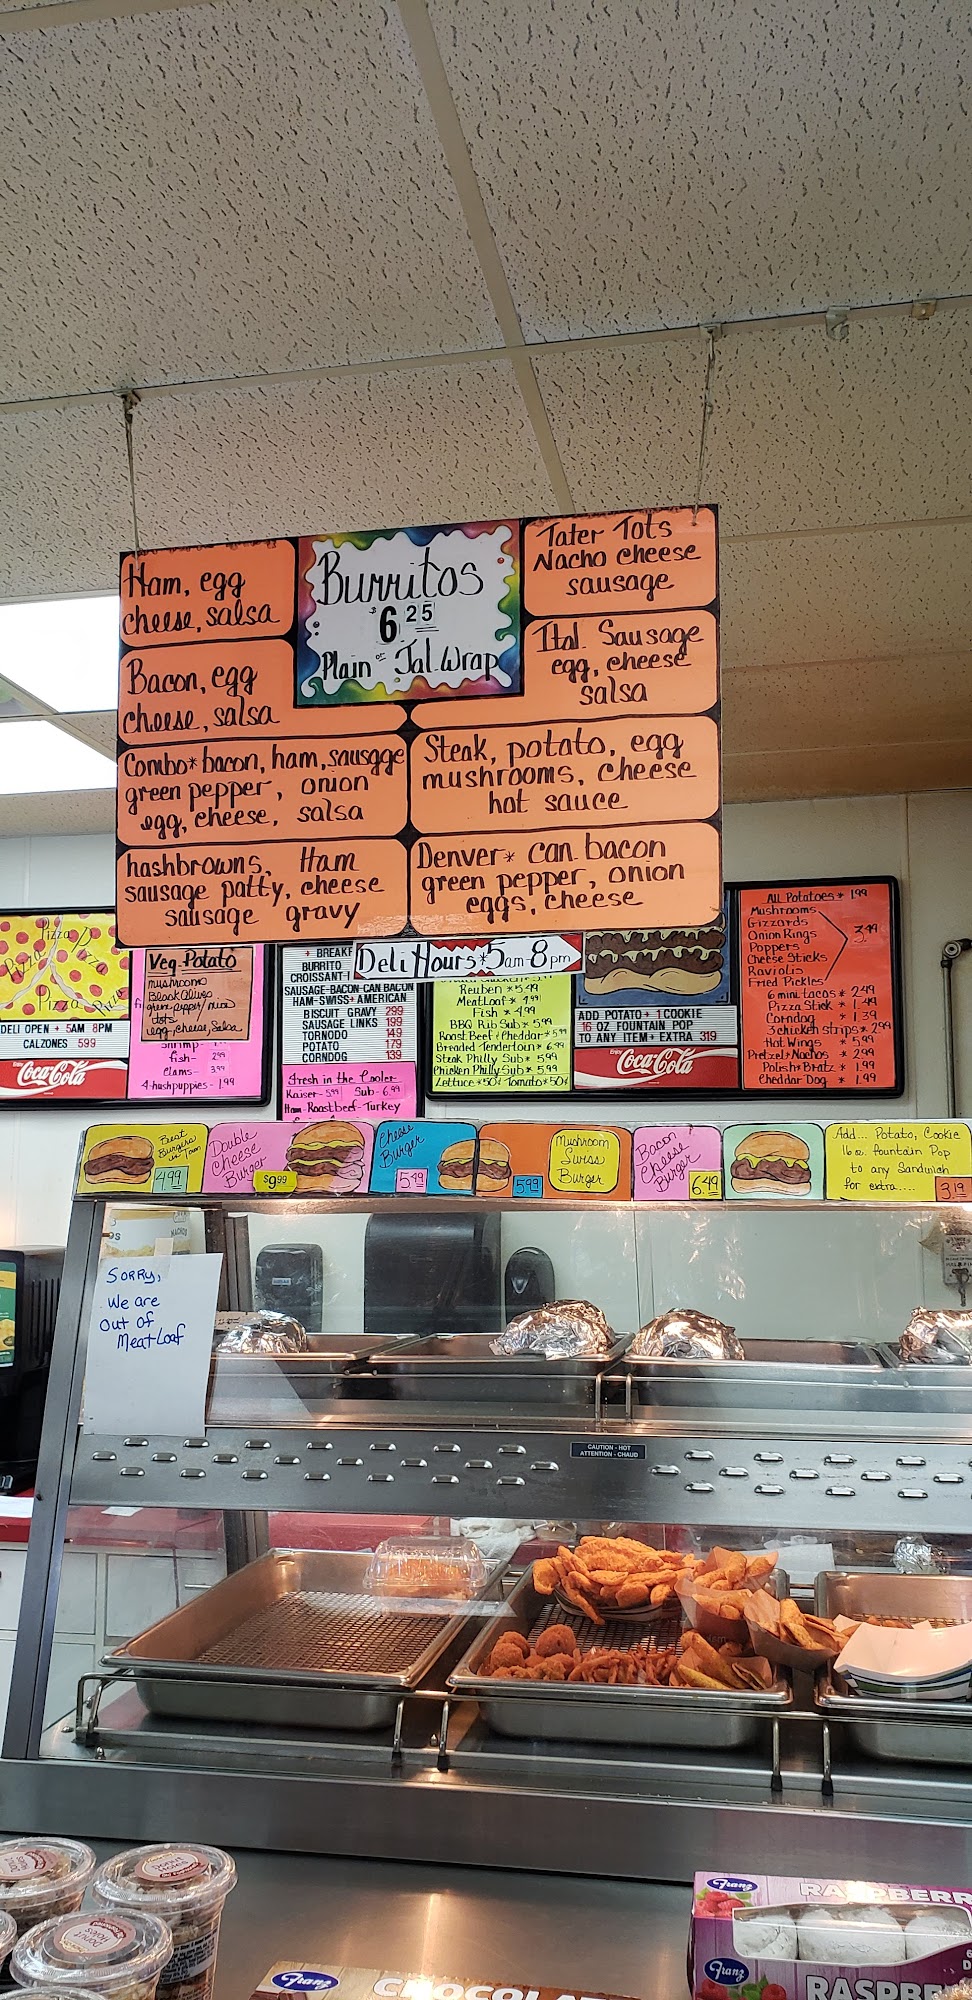 Ham, egg
cheese, salsa
Bacon, egg
cheese, salsa
Combo* bacon, ham, sausgge
green pepper, onion
egg, cheese, salsa
hashbrowns, Ham
sausage patty, cheese
sausage gravy
Burritos
$6 25
Plain or Jal. Wrap
Tater Tots
Nacho cheese
sausage
Ital. Sausage
egg, cheese
salsa
Steak, potato, egg
mushrooms, cheese
hot sauce
Denver* can. bacon
green pepper, onion
eggs, cheese
Deli Hours* 5am-8pm
Pizza
Pizza
Pizza
Pizza
Pizza
DELI OPEN + 5AM 8PM
CALZONES 599
Enjoy
Coca-Cola
Veg-Potato
mushrooms
Black Olives
green pepper/
egg, cheese, salsa
shrimp-
fish- 299
Clams- 399
4-hushpuppies- 1.99
+ BREAKF
BURRITO
CROISSANT-
SAUSAGE-BACON-CAN BACON
HAM-SWISS+AMERICAN
BISCUIT GRAVY 299
SAUSAGE LINKS 199
TORNODO 149
POTATO 179
CORNDOG 139
Fresh in the Cooler
Kaiser- 5.99 Sub- 6.99
Ham-Roastbeef-Turkey
Reuben * 5.49
MeatLoaf * 4.99
Fish * 4.99
BBQ Rib Sub* 5.99
Roast Beef & Cheddar* 5.99
Breaded Tenderloin* 6.99
Steak Philly Sub* 5.99
Chicken Philly Sub* 5.99
Lettuce*50¢ Tomato*50¢
ADD POTATO+1 COOKIE
16 OZ FOUNTAIN POP
TO ANY ITEM+ EXTRA 319
Enjoy
Coca-Cola
All Potatoes* 1.99
Mushrooms
Gizzards
Onion Rings
Poppers
Cheese Sticks
Raviolis
Fried Pickles
3.99
6 mini tacos* 2.49
Pizza Stick * 1.49
Corndog * 1.39
3 chicken strips* 2.99
Hot Wings * 5.99
Pretzel & Nachos * 2.99
Polish & Bratz * 1.99
Cheddar Dog * 1.99
Best
Burgers
in Town
4.99
Double
Cheese
Burger
$9.99
Cheese
Burger
5.49
5.99
Mushroom
Swiss
Burger
Bacon
Cheese
Burger
6.49
Add... Potato, Cookie
16 oz. Fountain Pop
to any Sandwich
for extra....
3.19
NACHO
SORRY,
We are
Out of
MeatLoaf
CAUTION - HOT
ATTENTION - CHAUD
Franz
RASPBERR
Franz
RASPBE
Franz
CHOCOLAT